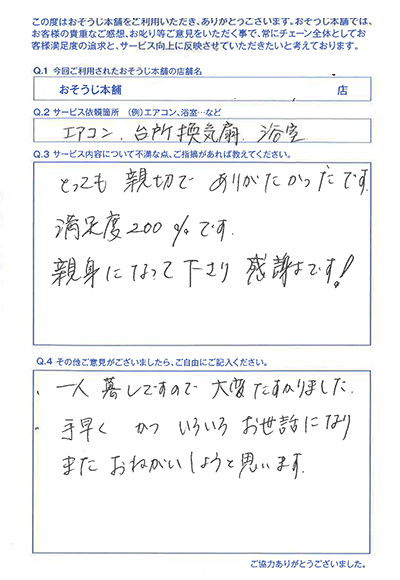 この度はおそうじ本舗をご利用いただき、ありがとうございます。おそうじ本舗では、
お客様の貴重なご感想、お叱り等ご意見をいただく事で、常にチェーン全体としてお
客様満足度の追求と、サービス向上に反映させていただきたいと考えております。
Q.1 今回ご利用されたおそうじ本舗の店舗名
おそうじ本舗 店
Q.2 サービス依頼箇所 (例)エアコン、浴室…など
エアコン、台所換気扇、浴室
Q.3 サービス内容について不満な点、ご指摘があれば教えてください。
とっても 親切で ありがたかったです.
満足度200%です.
親身になって下さり 感謝です!
Q.4 その他ご意見がございましたら、ご自由にご記入ください。
、一人暮しですので 大変たすかりました.
、手早く かつ いろいろ お世話になり
また おねがいしようと思います.
ご協力ありがとうございました。